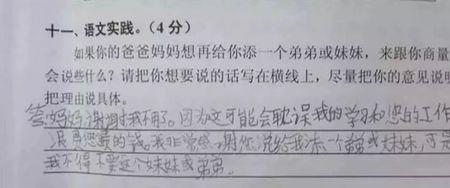 十一、语文实践。（4分）
如果你的爸爸妈妈想再给你添一个弟弟或妹妹，来跟你商量
会说些什么？请把你想要说的话写在横线上，尽量把你的意见说明
把理由说具体。
答：妈妈谢谢对我不用了。因为这可能会耽误我的学习和您的工作
浪费您最的钱。我非常感谢你说给我添一个弟弟或妹妹，可是
我不得不要这个妹妹或弟弟。